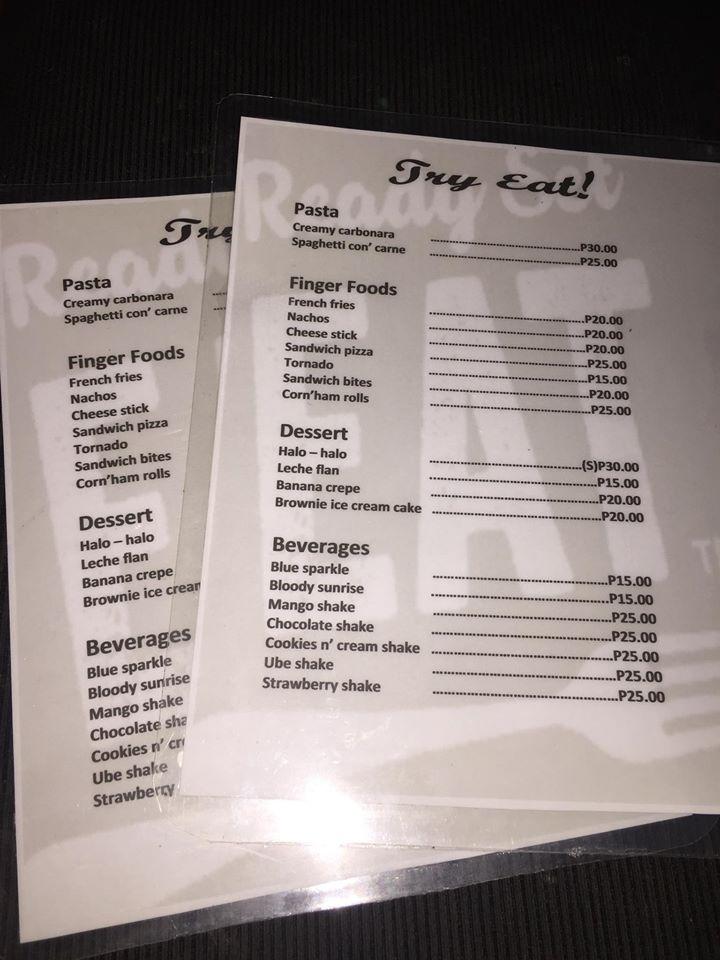 Try Eat!
Ready
EAT
Pasta
Creamy carbonara ..........P30.00
Spaghetti con’ carne ..........P25.00
Finger Foods
French fries ..........P20.00
Nachos ..........P20.00
Cheese stick ..........P20.00
Sandwich pizza ..........P25.00
Tornado ..........P15.00
Sandwich bites ..........P20.00
Corn’ham rolls ..........P25.00
Dessert
Halo – halo ..........(S)P30.00
Leche flan ..........P15.00
Banana crepe ..........P20.00
Brownie ice cream cake ..........P20.00
Beverages
Blue sparkle ..........P15.00
Bloody sunrise ..........P15.00
Mango shake ..........P25.00
Chocolate shake ..........P25.00
Cookies n’ cream shake ..........P25.00
Ube shake ..........P25.00
Strawberry shake ..........P25.00
Try
Pasta
Creamy carbonara
Spaghetti con’ carne
Finger Foods
French fries
Nachos
Cheese stick
Sandwich pizza
Tornado
Sandwich bites
Corn’ham rolls
Dessert
Halo – halo
Leche flan
Banana crepe
Brownie ice crear
Beverages
Blue sparkle
Bloody sunrise
Mango shake
Chocolate sha
Cookies n’ cr
Ube shake
Strawberry